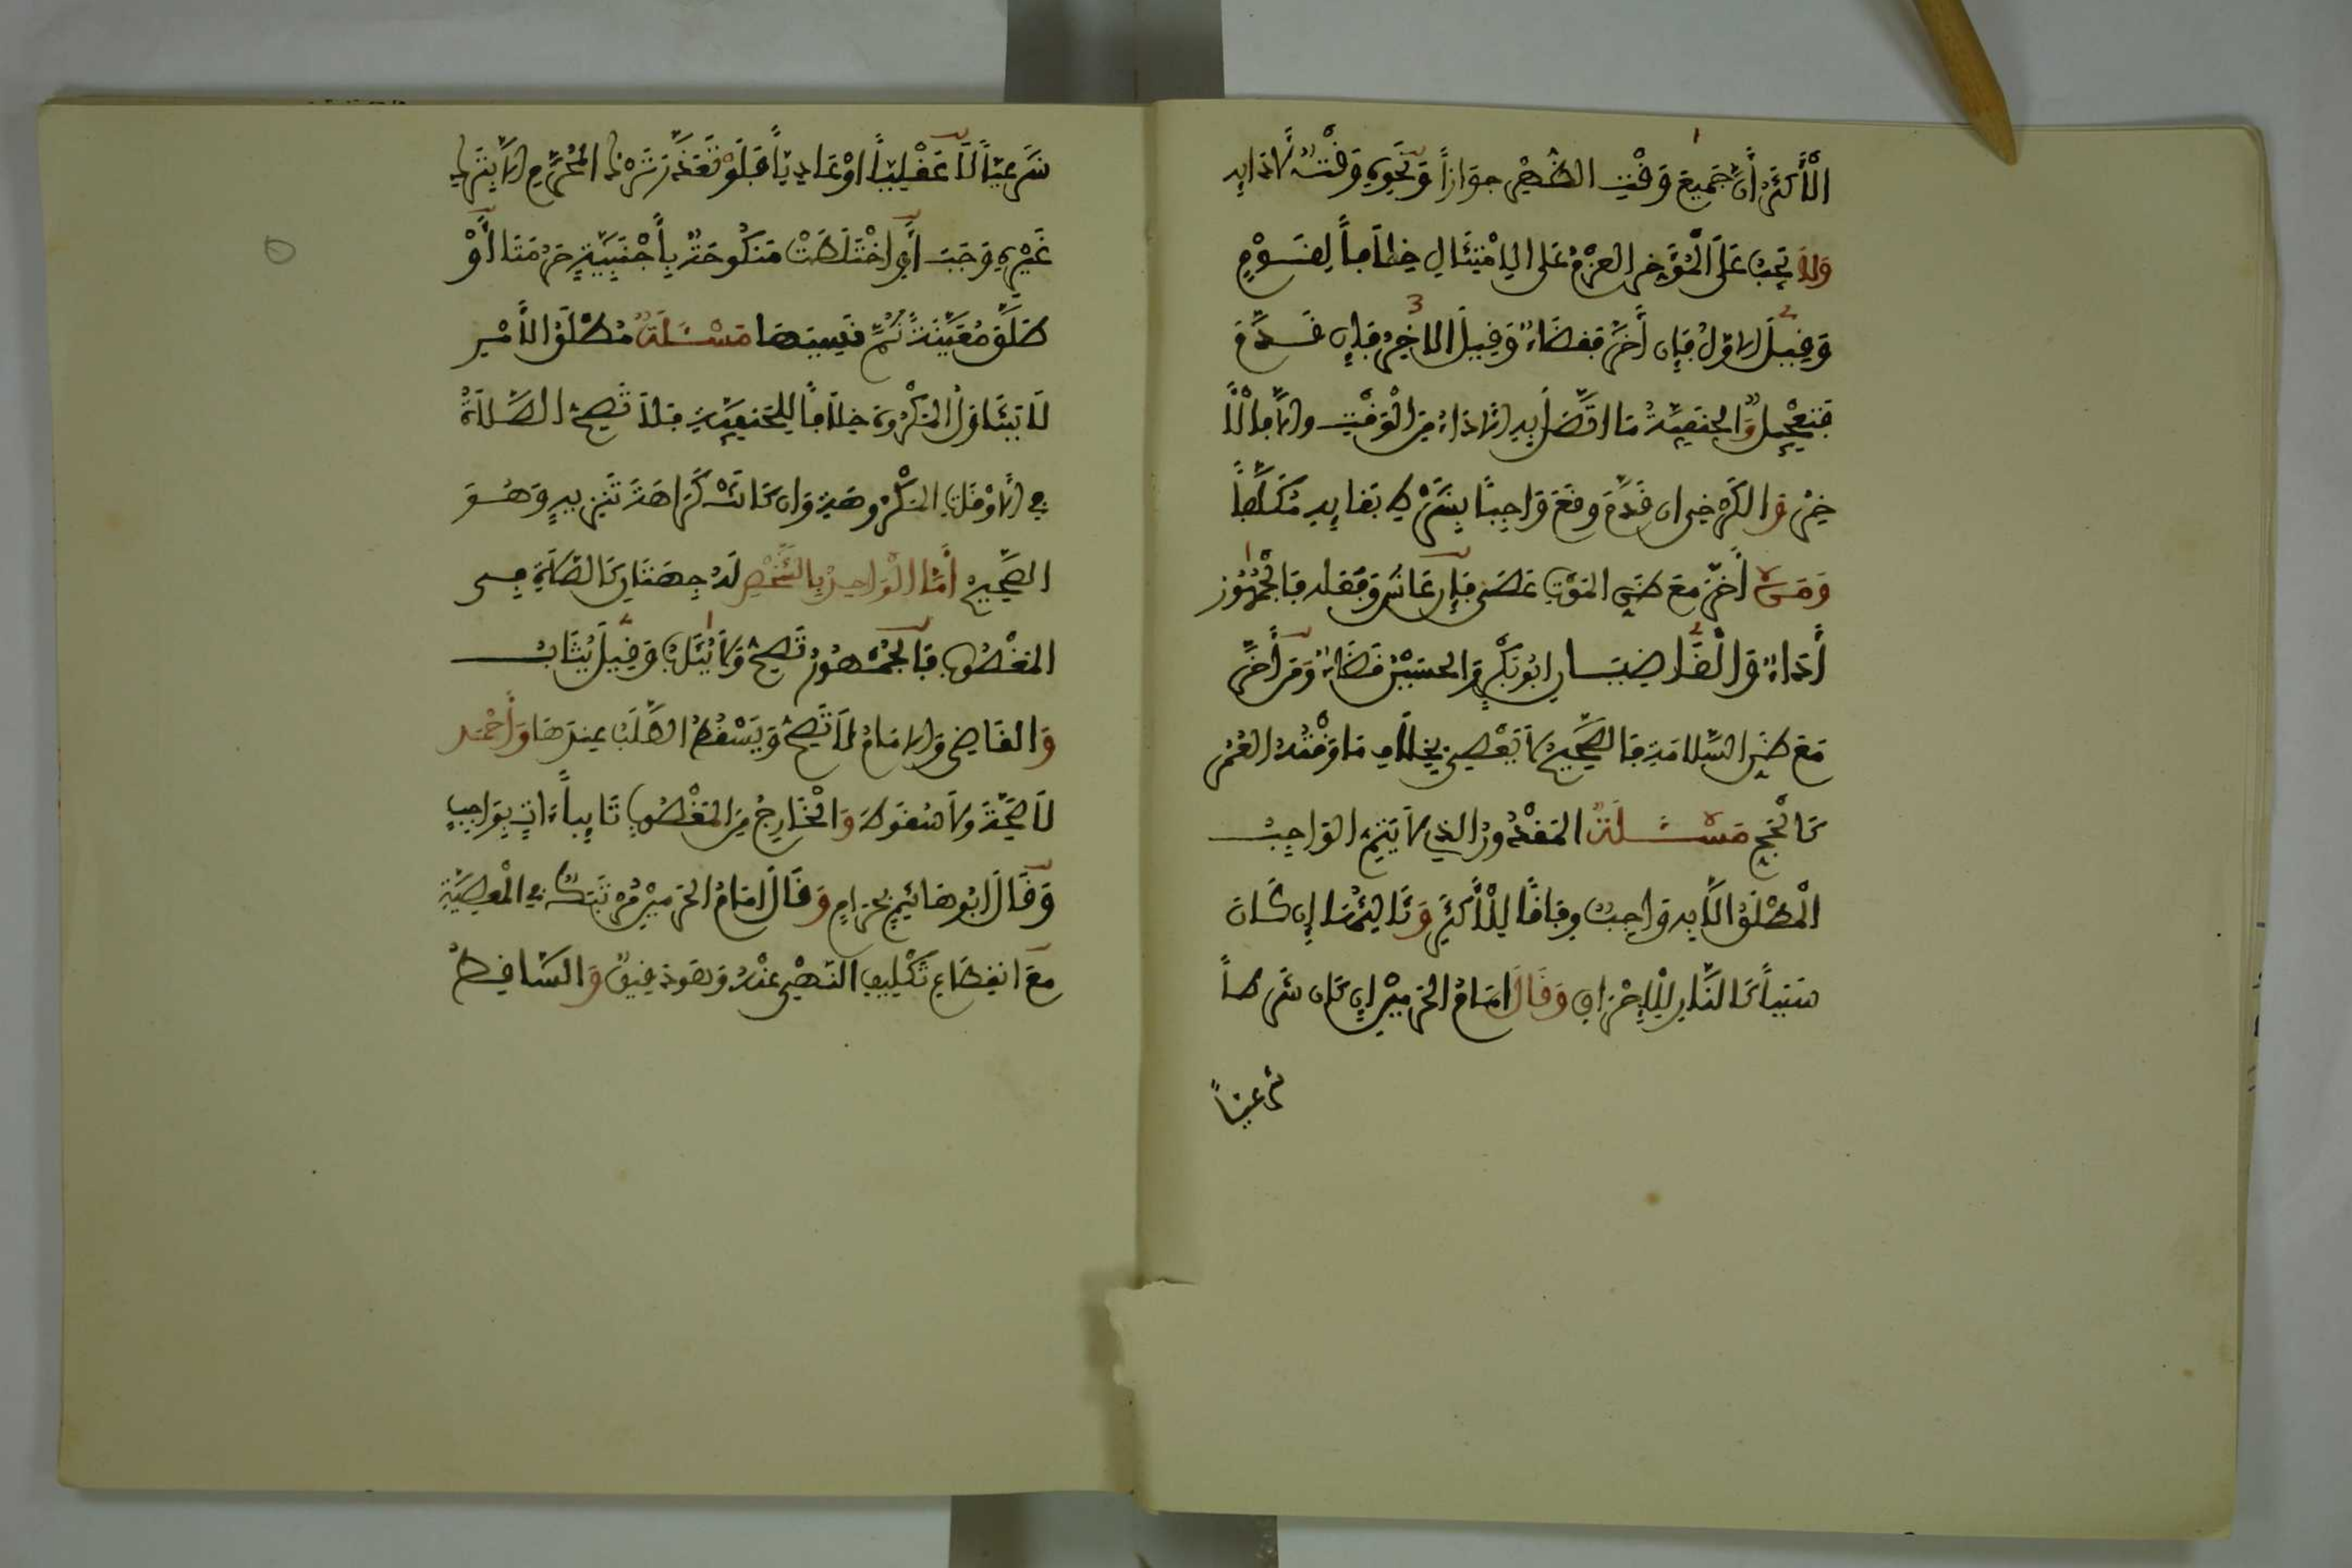 الأَكْثَرُ أَنَّ جَمِيعَ وَقْتِ الظُّهْرِ جَوَازاً وَنَحْوِهِ وَقْتٌ لِأَدَائِهِ
وَلَا يَجِبُ عَلَى الْمُؤَخِّرِ العَزْمُ عَلَى الِامْتِثَالِ خِلَافاً لِقَوْمٍ
وَقِيلَ الاوَّلُ فَإِن أَخَّرَ فَقَضَاءٌ وَقِيلَ الاخِرُ فَإِن قَدَّمَ
فَتَعْجِيلٌ وَالحَنَفِيَّةُ مَا اتَّصَلَ بِهِ الأَدَاءُ مِنَ الْوَقْتِ والا فالأ
خِرُ وَالكَرْخِى ان قَدَّمَ وقَعَ وَاجِباً بِشَرْطِ بَقَايِهِ مُكَلَّفاً
وَمَنْ أَخَّرَ مَعَ ظَنِّ المَوْتِ عَصَى فَإِن عَاشَ وَفَعَلَهُ فَالْجُمْهُورُ
أَدَاءٌ وَالْقَاضِيَانِ ابُو بَكْرٍ وَالحسَيْنُ قَضَاءٌ وَمَن أَخَّرَ
مَعَ ظَنِّ السَّلَامَةِ فَالصَّحِيحُ لَا يَعْصِى بِخِلَافِ مَا وَقْتُهُ العُمُرُ
كَالْحَجِّ مَسْئَلَةٌ المَقْدُورُ الذِي لَا يَتِمُّ الوَاجِبُ
الْمُطْلَقُ الَّا بِهِ وَاجِبٌ وِفَاقاً لِلْأَكْثَرِ وَثَالِثُهَا إِن كَانَ
سَبَباً كَالنَّارِ لِلْإِحْرَاقِ وَقَالَ امَامُ الحَرَمَيْنِ إِن كَان شَرْطاً
شرعيّاً
شَرْعِيّاً لَا عَقْلِيّاً اوْ عَادِيّاً فَلَوْ تَعَذَّرَ تَرْكُ الْمُحَرَّمِ الَّا بِتَرْكِ
غَيْرِهِ وَجَبَ أَوِ اخْتَلَطَتْ مَنكُوحَةٌ بِأَجْنَبِيَّةٍ حَرُمَتَا أَوْ
طَلَّقَ مُعَيَّنَةً ثُمَّ نَسِيَهَا مَسْئَلَةٌ مُطْلَقُ الأَمْرِ
لَا يَتَنَاوَلُ المَكْرُوهَ خِلَافاً لِلحَنَفِيَّةِ فَلَا تَصِحُّ الصَّلَاةُ
فِي الأَوْقَاتِ المَكْرُوهَةِ وَان كَانَتْ كَرَاهَةَ تَنْزِيهٍ وَهُوَ
الصَّحِيحُ أَمَّا الْوَاحِدُ بِالشَّخْصِ لَهُ جِهَتَانِ كَالصَّلَاةِ فِى
المَغْصُوبِ فَالْجُمْهُورُ تَصِحُّ وَلَا يُثَابُ وَقِيلَ يُثَابُ
وَالقَاضِى وَالامَامُ لَا تَصِحُّ وَيَسْقُطُ الطَّلَبُ عِندَهَا وَأَحْمَد
لَا صِحَّةَ وَلَا سُقُوطَ وَالْخَارِجُ مِنَ المَغْصُوبِ تَايِباً ءَاتٍ بِوَاجِبٍ
وَقَالَ ابُو هَاشِمٍ بِحَرَامٍ وَقَالَ امَامُ الحَرَمَيْنِ مُرْتَبِكٌ فِي الْمَعْصِيَةِ
مَعَ انقِطَاعِ تَكْلِيفِ النَهْىِ عَنْهُ وَهُوَ دَقِيقٌ وَالسَّاقِطُ